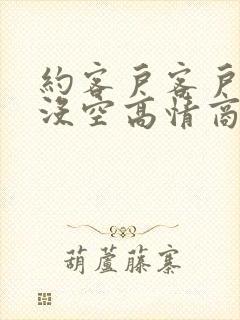 約客戶客戶
沒空高情商
葫蘆藤寨